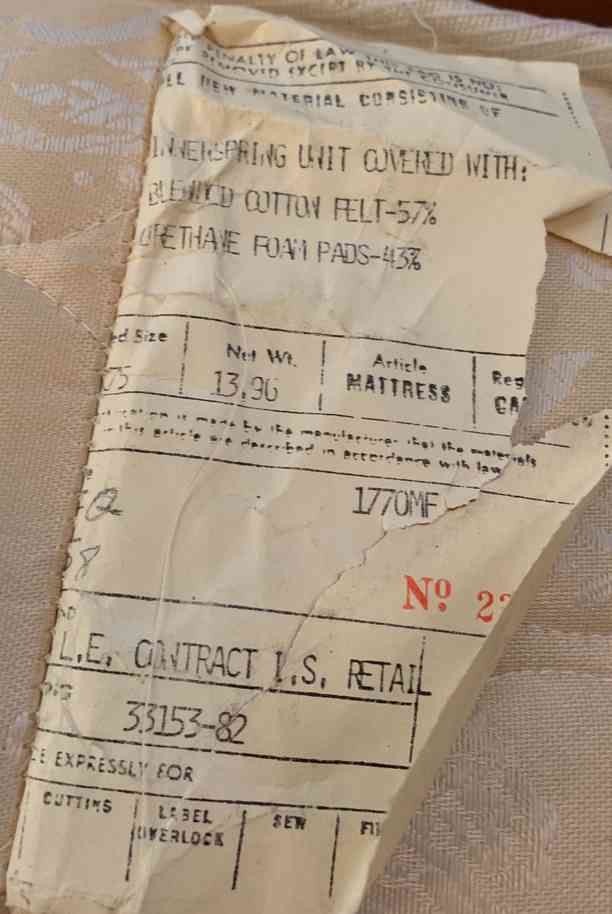 PENALTY OF LAW
REMOVED EXCEPT BY
NEW MATERIAL CONSISTING OF
INNERSPRING UNIT COVERED WITH:
BLENDED COTTON FELT-57%
URETHANE FOAM PADS-43%
Size Net Wt. Article Reg
75 13.96 MATTRESS
is made by the manufacturer that the materials
in this article are described in accordance with law
1770MF
Nº 2
L.E. CONTRACT I.S. RETAIL
33153-82
EXPRESSLY FOR
CUTTING LABEL OVERLOCK SEW